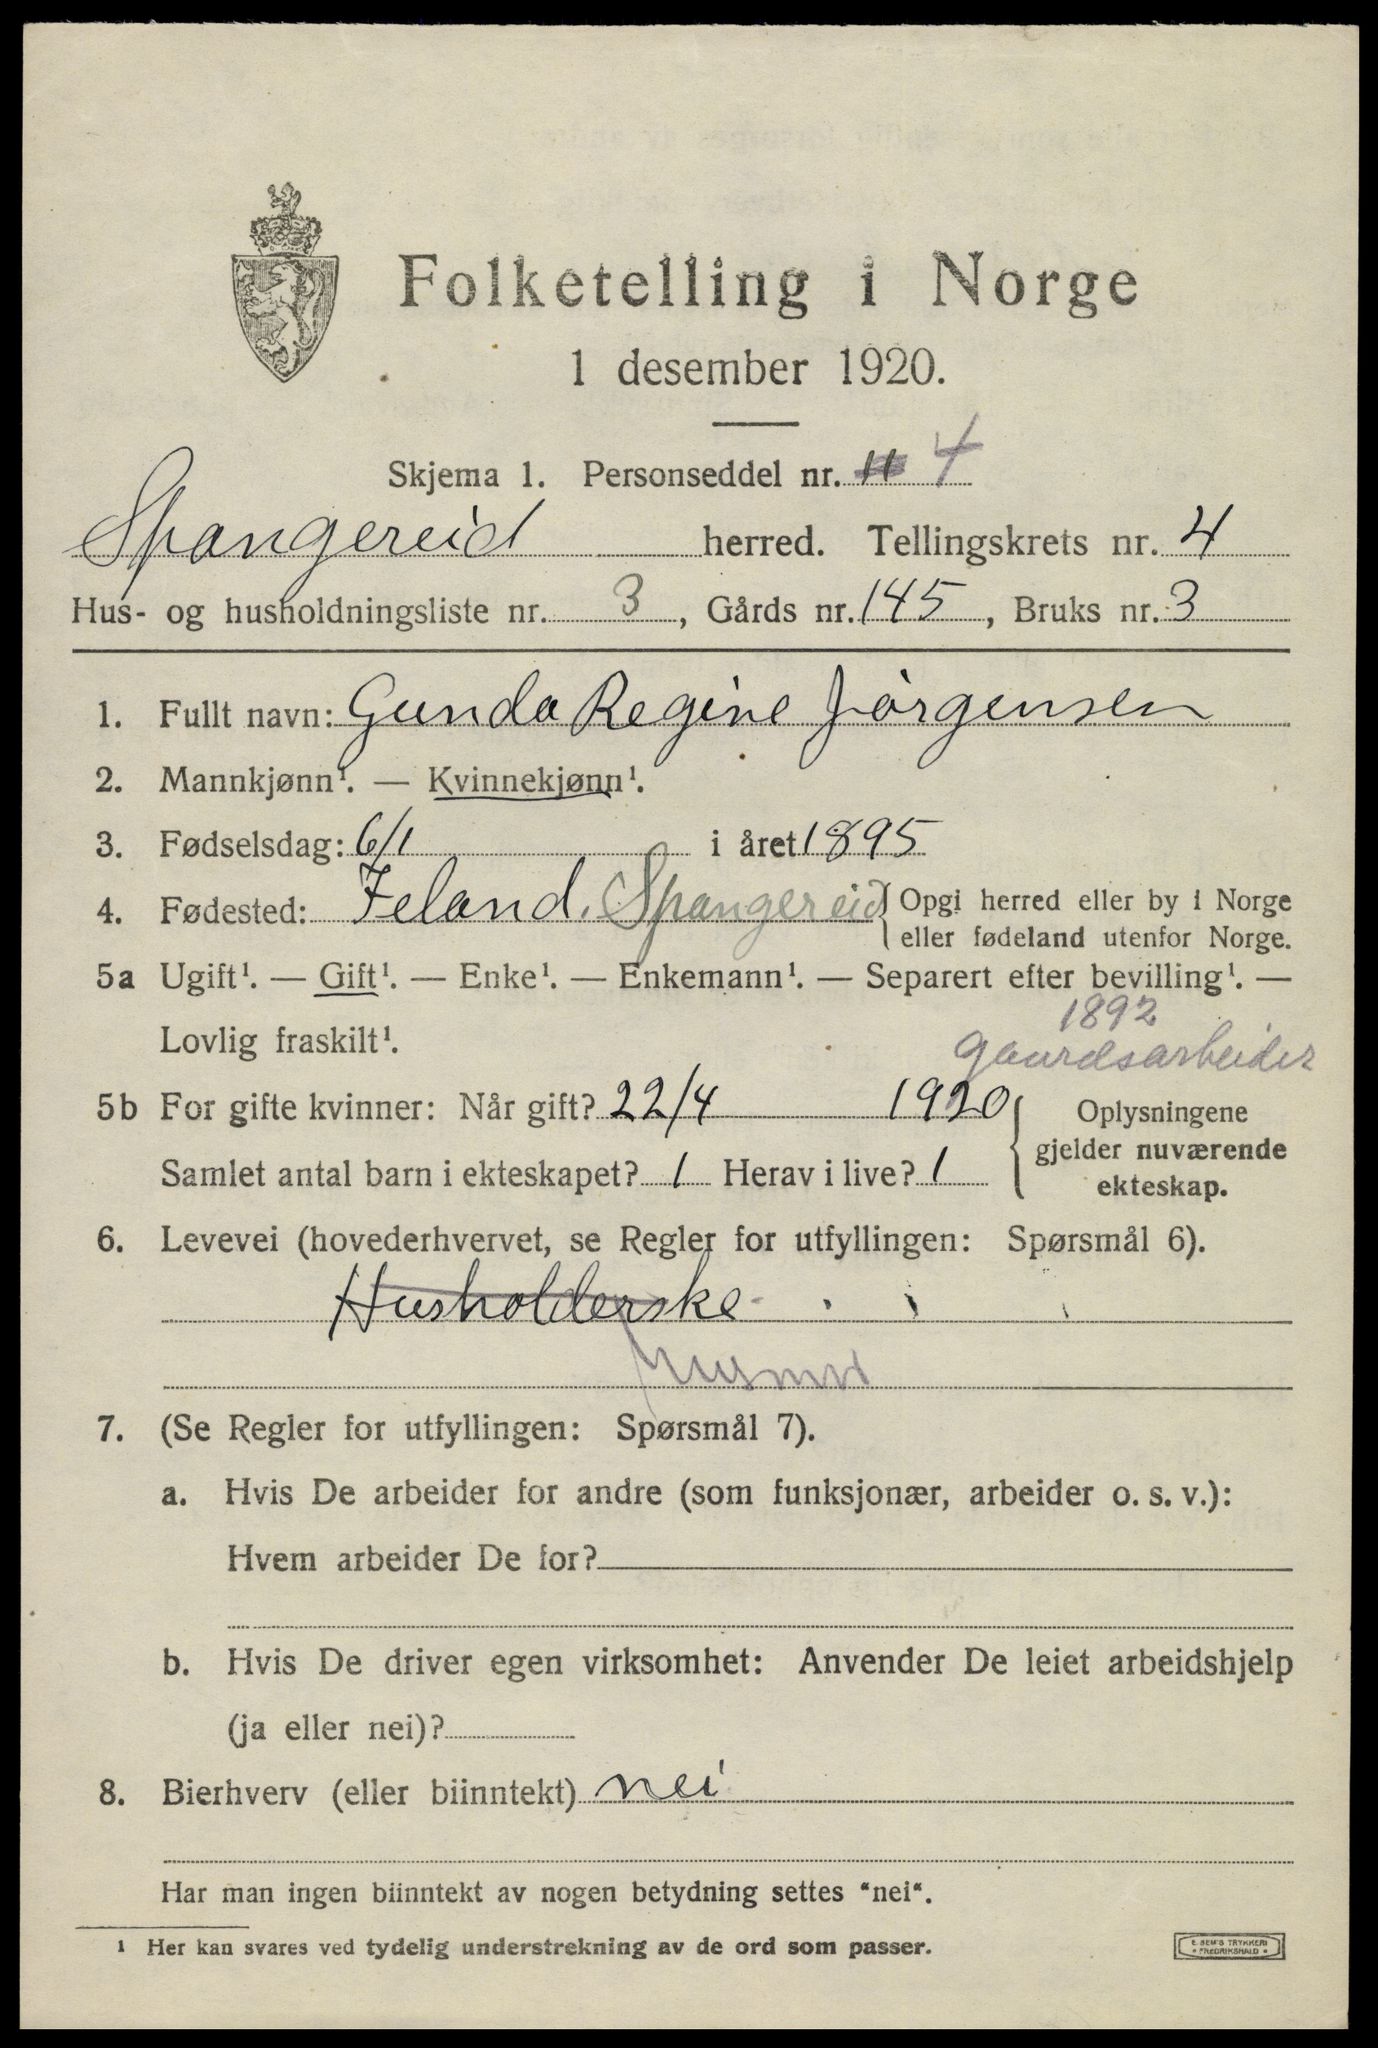 Folketelling i Norge
1 desember 1920.
Skjema 1. Personseddel nr. 4
Spangereid herred. Tellingskrets nr. 4
Hus- og husholdningsliste nr. 3, Gårds nr. 145, Bruks nr. 3
1. Fullt navn: Gunda Regine Jörgensen
2. Mannkjønn¹. — Kvinnekjønn¹.
3. Fødselsdag: 6/1 i året 1895
4. Fødested: Jeland. Spangereid { Opgi herred eller by i Norge
eller fødeland utenfor Norge.
5a Ugift¹. — Gift¹. — Enke¹. — Enkemann¹. — Separert efter bevilling¹. —
Lovlig fraskilt¹.
1892
gaurdsarbeider
5b For gifte kvinner: Når gift? 22/4 1920
Samlet antal barn i ekteskapet? 1 Herav i live? 1
Oplysningene
gjelder nuværende
ekteskap.
6. Levevei (hovederhvervet, se Regler for utfyllingen: Spørsmål 6).
Husholderske
7. (Se Regler for utfyllingen: Spørsmål 7).
a. Hvis De arbeider for andre (som funksjonær, arbeider o. s. v.):
Hvem arbeider De for?
b. Hvis De driver egen virksomhet: Anvender De leiet arbeidshjelp
(ja eller nei)?
8. Bierhverv (eller biinntekt) nei
Har man ingen biinntekt av nogen betydning settes "nei".
¹ Her kan svares ved tydelig understrekning av de ord som passer.
E. SEM'S TRYKKERI
FREDRIKSHALD